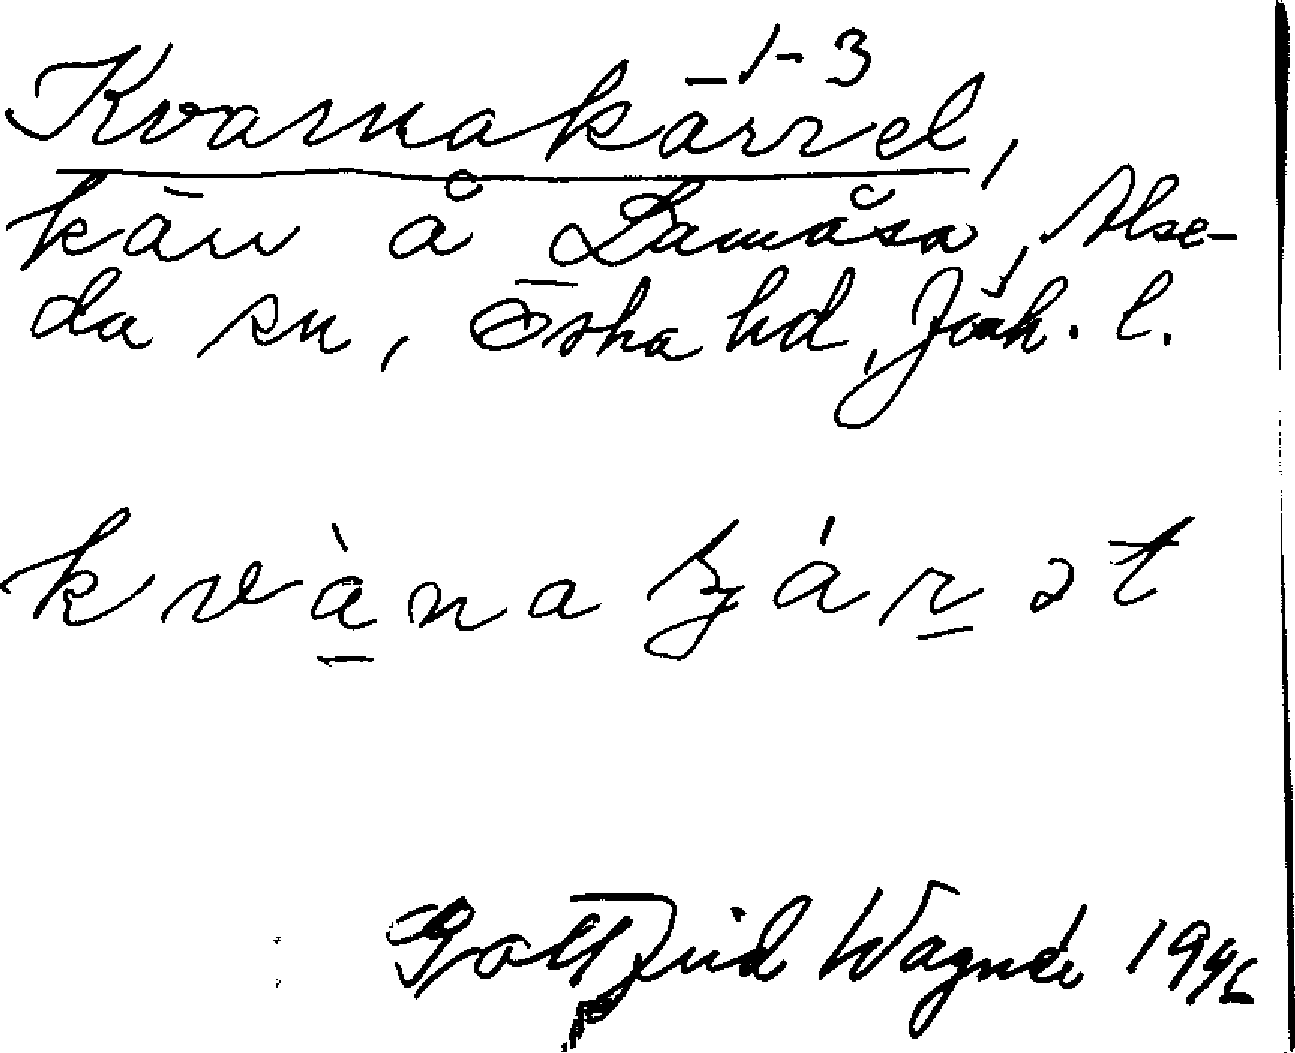 1-3
Kvarnakärret,
kärr å Lamåsa, Alse-
da sn, Östra hd, Jönk. l.
kvànaʈʂárət
Gottfrid Wagnér 1946